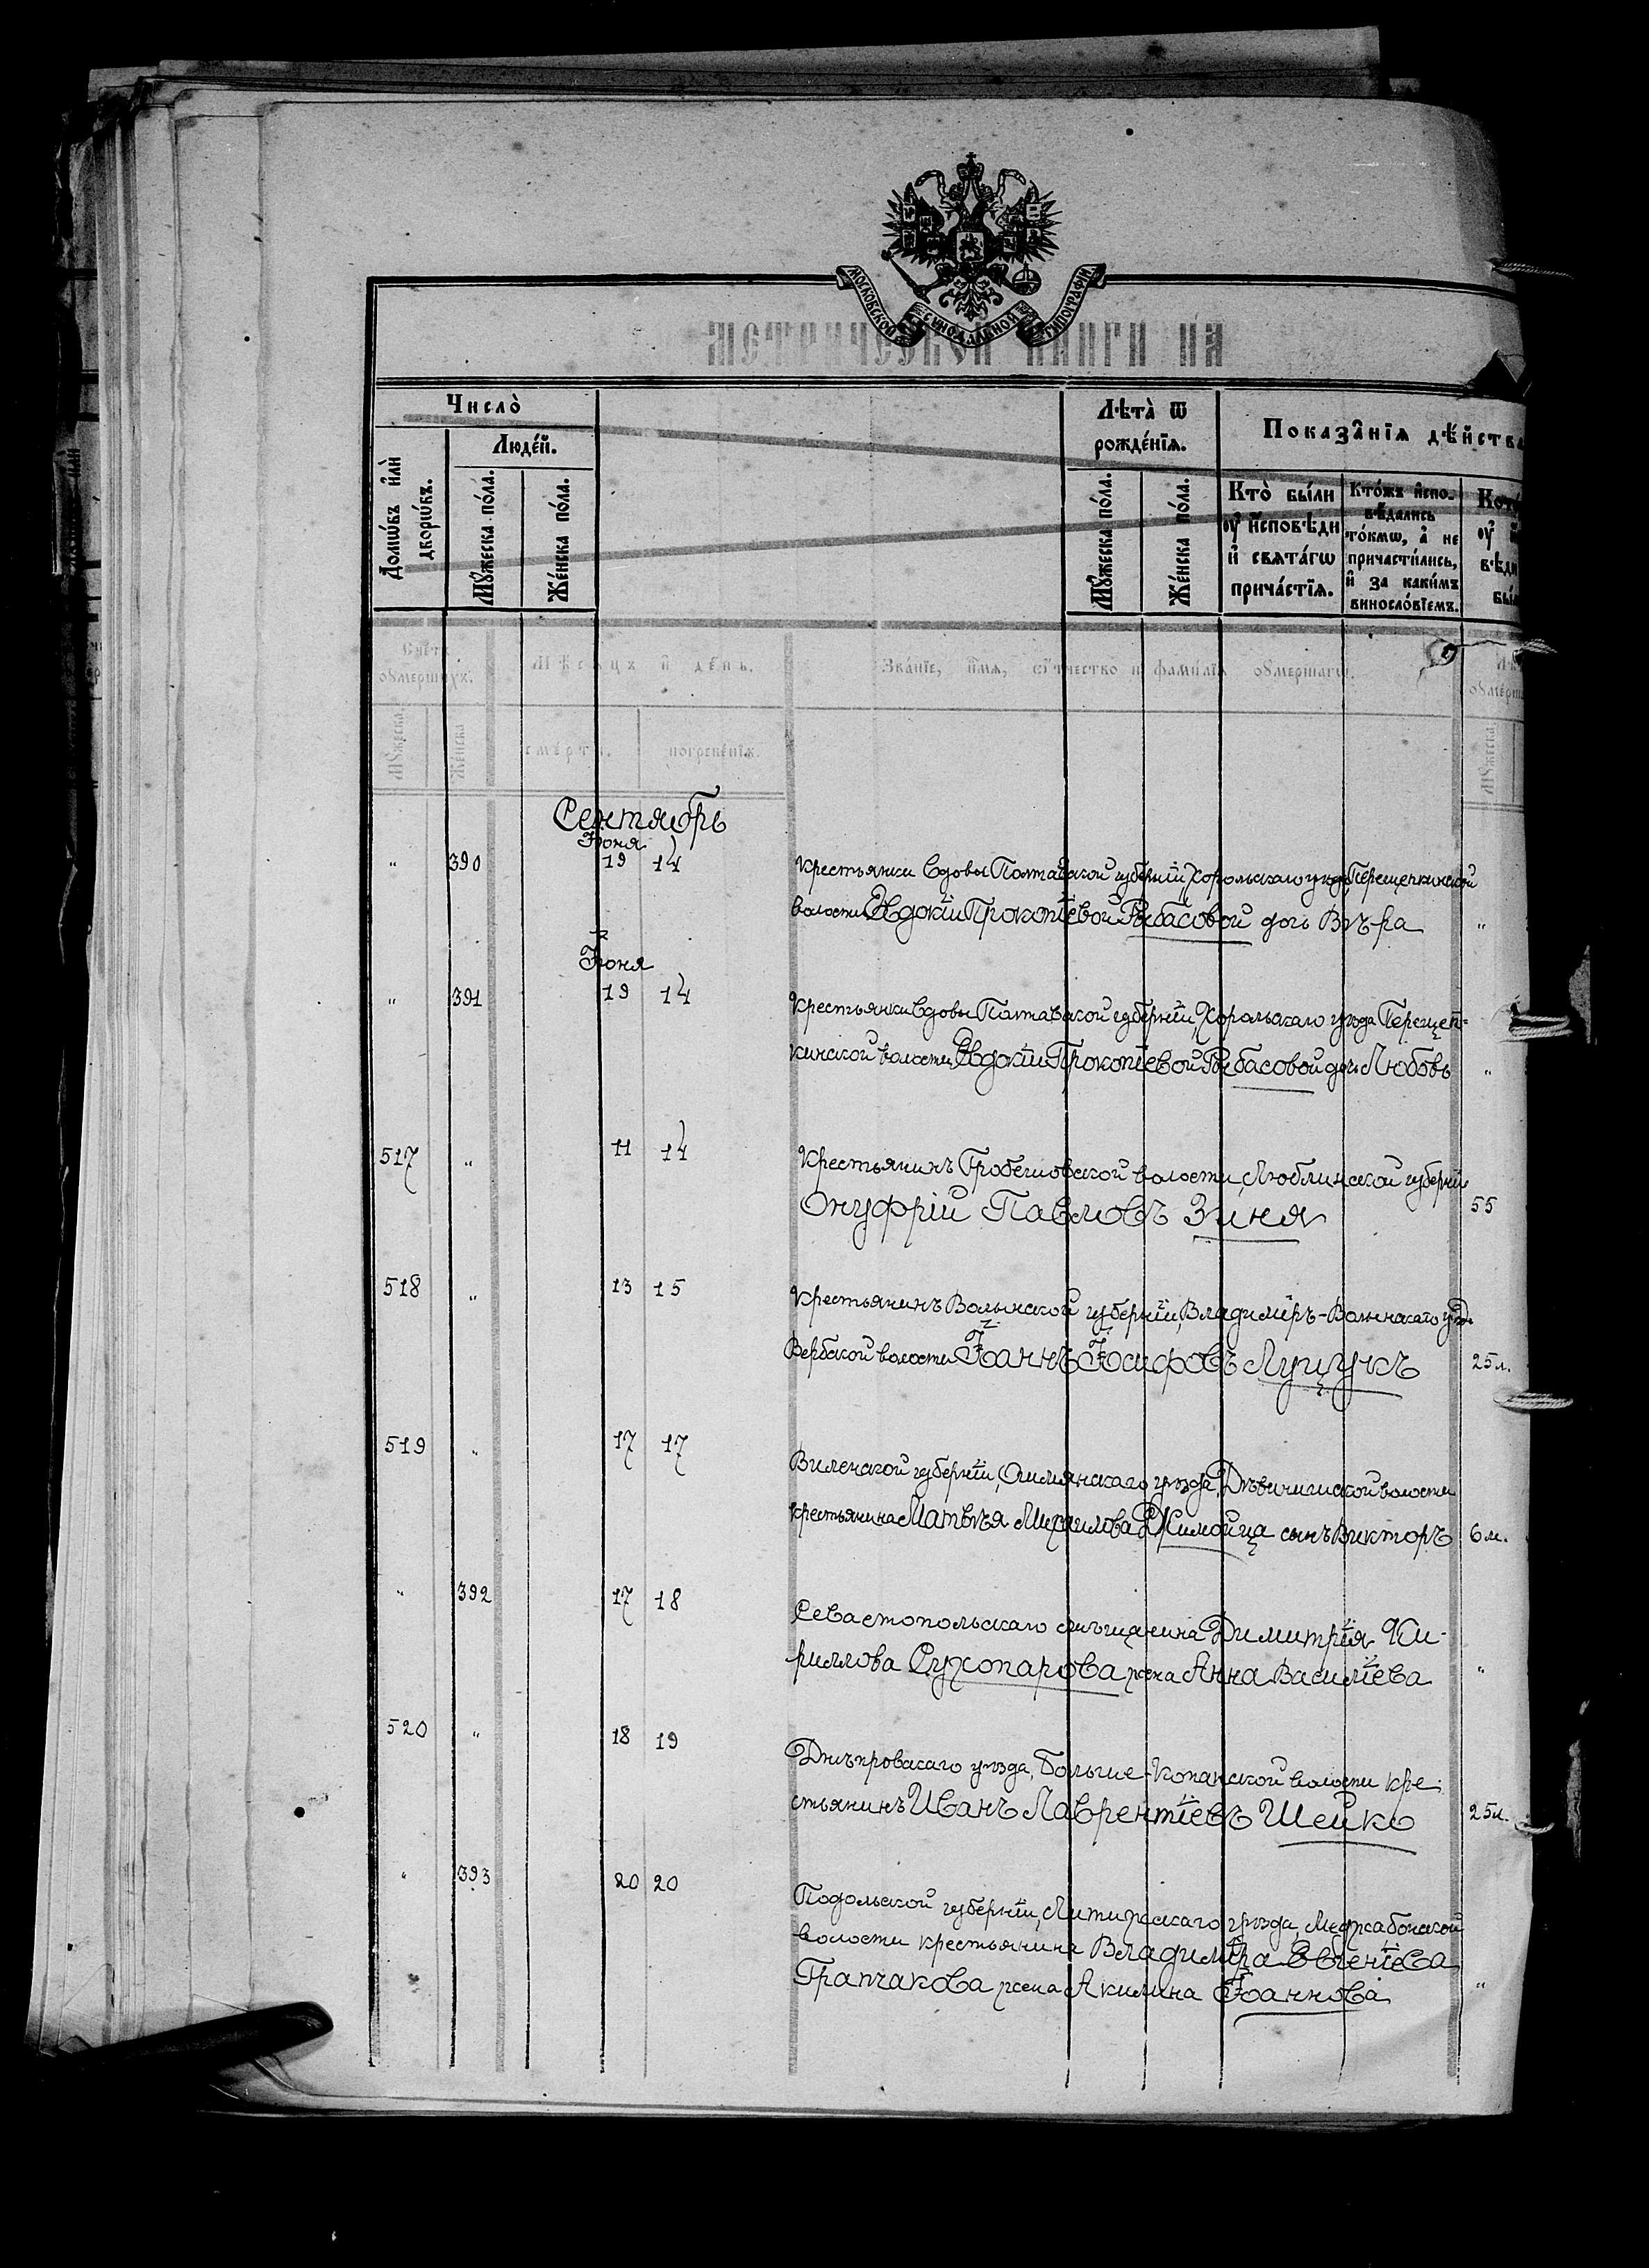 МОСКОВСКОЙ СѴНОДАЛЬНОЙ ТИПОГРАФІИ
МЕТРИЧЕСКОЙ КНИГИ НА
Число̀
Людє́й.
Домѡ́въ и҆лѝ дворѡ́въ.
Мꙋ́жеска по́ла.
Же́нска по́ла.
Лѣ́та ѿ рожде́нїѧ.
Мꙋ́жеска по́ла.
Же́нска по́ла.
Показа̑нїѧ дѣ́йства
Кто̀ бы́ли
оу҆ и҆сповѣди
и҆ свѧта́гѡ
прича́стїѧ.
Кто́жъ и҆спо-
вѣ́дались
то́кмѡ, а҆ не
причасти́лись,
и҆ за каки́мъ
винослові́емъ.
Счетъ ᲂумершихъ.
Мꙋжеска
Женска
Мѣсяцъ и день.
смерти.
погребенїя.
Званїе, имя, отчество и фамилїя ᲂумершагѡ.
Мꙋжеска
Сентябрь
Іюня
" 390 19 14 Крестьянки вдовы Полтавской губерніи, Хорольскаго уѣзда, Перещепкинской
волости Евдокіи Прокопіевой Рыбасовой дочь Вѣра "
Іюня
" 391 19 14 Крестьянки вдовы Полтавской губерніи, Хорольскаго уѣзда Перещеп-
кинской волости, Евдокіи Прокопіевой Рыбасовой дочь Любовь "
517 " 11 14 Крестьянинъ волости, Люблинской губерніи
Онуфрій Павловъ Зиня 55
518 " 13 15 Крестьянинъ Волынской губерніи, Владиміръ-Волынскаго уѣзд.
Вербской волости Іоаннъ Іосифовъ Луцукъ 25 л.
519 " 17 17 Виленской губерніи, Ошмянскаго уѣзда, волости
крестьянина Матвѣя Михаилова сынъ Викторъ 6 м.
" 392 17 18 Севастопольскаго мѣщанина Димитрія Ки-
риллова Сухопарова жена Анна Василіева "
520 " 18 19 Днѣпровскаго уѣзда, Больше-Копанской волости кре-
стьянинъ Иванъ Лаврентіевъ Шейко 25 л.
" 393 20 20 Подольской губерніи, Литинскаго уѣзда, Меджабонской
волости крестьянина Владиміра Евгеніева
Грапчакова жена Акилина Іоаннова "